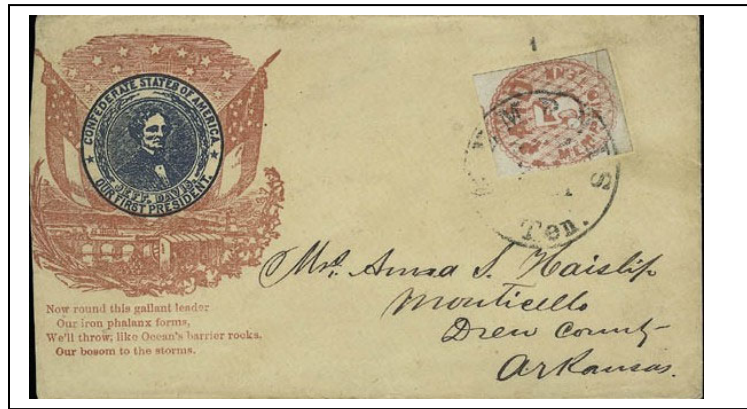 CONFEDERATE STATES OF AMERICA.
JEFF. DAVIS.
OUR FIRST PRESIDENT.
Now round this gallant leader
Our iron phalanx forms,
We'll throw, like Ocean's barrier rocks,
Our bosom to the storms.
1
MEMPHIS
Ten.
MEMPHIS
Mrs. Amad S. Haislip
Monticello
Drew County
Arkansas.